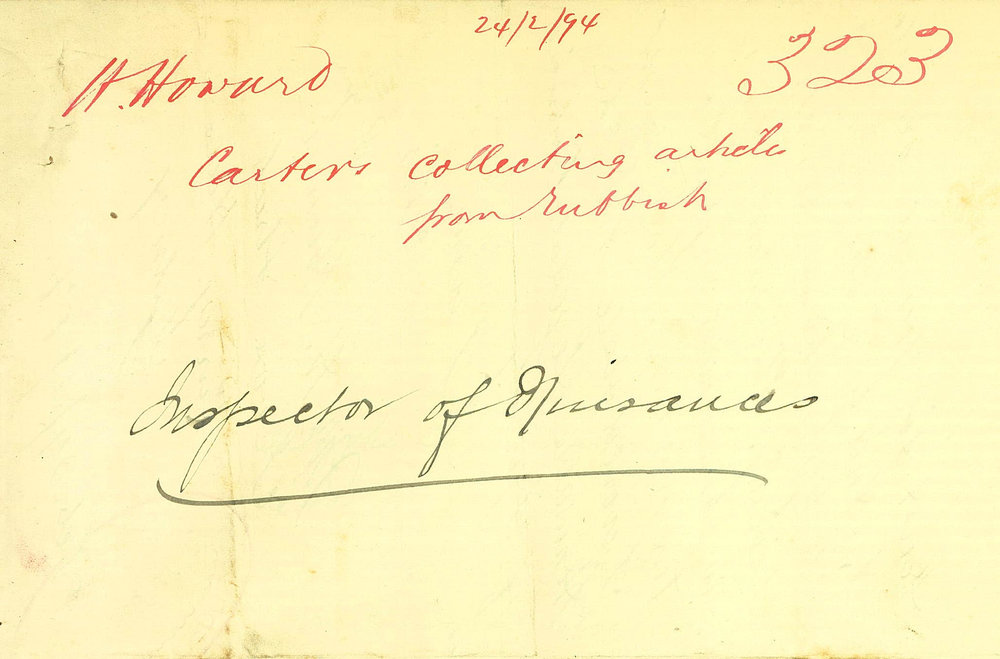 24/2/94
H. Howard
323
Carters collecting articles
from rubbish
Inspector of Nuisances